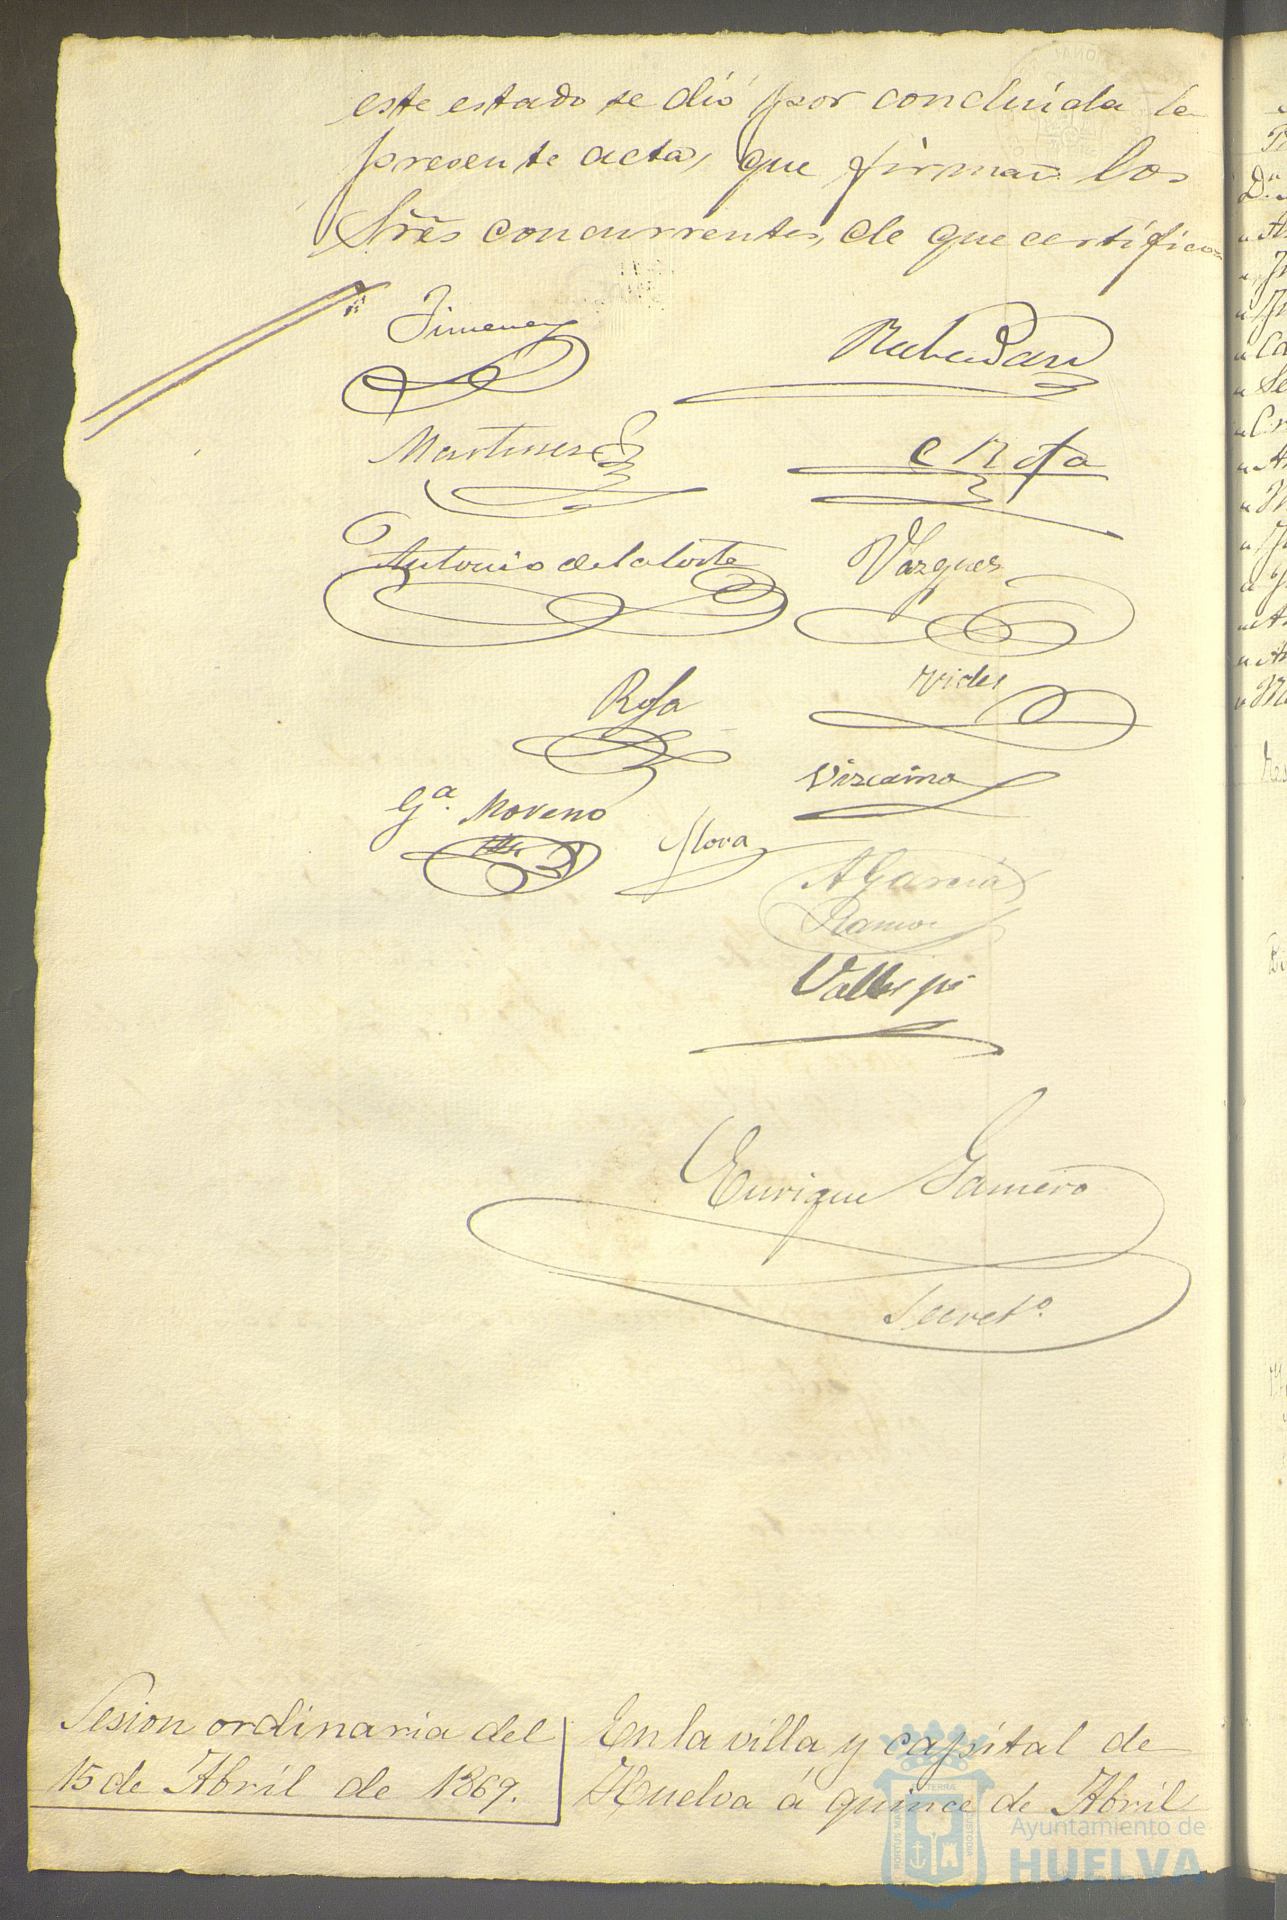 este estado se dió por concluida la
presente acta, que firman los
Sres concurrentes, de que certifico=
Jimenez
Martinez
C Rofa
Antonio de la Corte
Vazquez
Rofa
Vides
Vizcaino
Gª. Moreno
Mora
A Garcia
Ramos
Enrique Gamero
Secretº.
Sesion ordinaria del
15 de Abril de 1869.
En la villa y capital de
Huelva á quince de Abril
PORTUS MARIS
TERRA
CUSTODIA
Ayuntamiento de
HUELVA